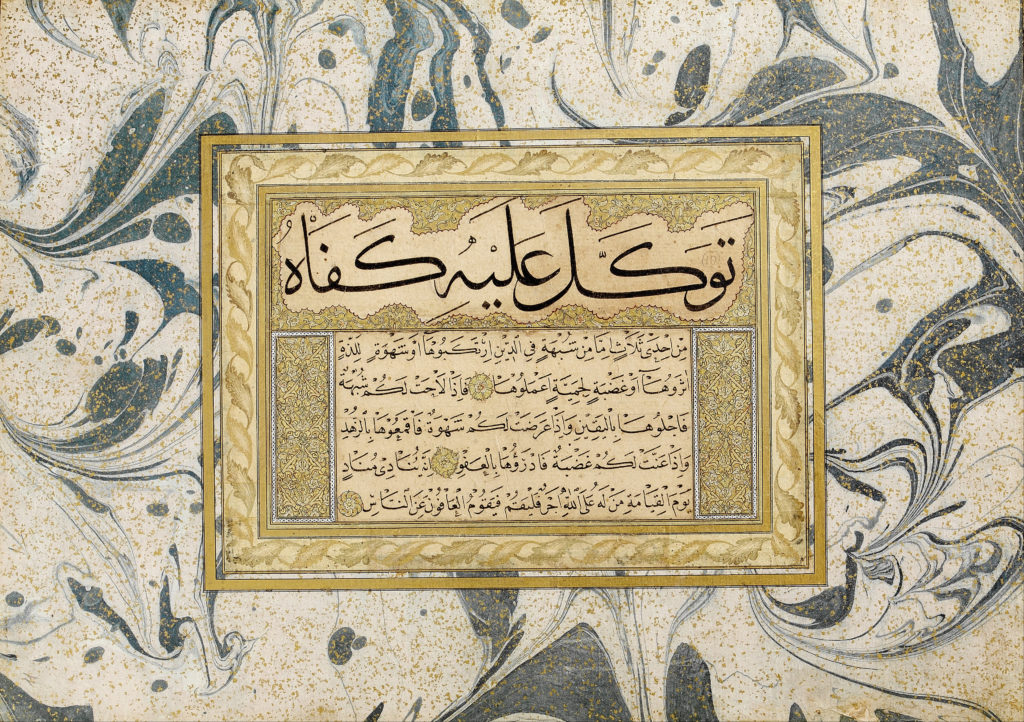 تَوَكَّلَ عَلَيْهِ كَفَاهُ
مِنْ اِحْدٰى ثَلَاثٍ اِمَّا مِنْ شُبْهَةٍ فِي الدِّيْنِ اِرْتَكَبُوهَا اَوْ شَهْوَةٍ لِلَذَّةٍ
اٰثَرُوهَا اَوْ غَضْبَةٍ لِحَمِيَّةٍ اَعْمَلُوهَا فَاِذَا لَاحَتْ لَكُمْ شُبْهَةٌ
فَاجْلُوهَا بِالْيَقِيْنِ وَاِذَا عَرَضَتْ لَكُمْ شَهْوَةٌ فَاقْمَعُوهَا بِالزُّهْدِ
وَاِذَا عَنَّتْ لَكُمْ غَضْبَةٌ فَادْرَؤُهَا بِالْعَفْوِ اِنَّهُ يُنَادِي مُنَادٍ
يَوْمَ الْقِيَامَةِ مَنْ لَهُ عَلَى اللّٰهِ اَجْرٌ فَلْيَقُمْ فَيَقُومُ الْعَافُونَ عَنِ النَّاسِ